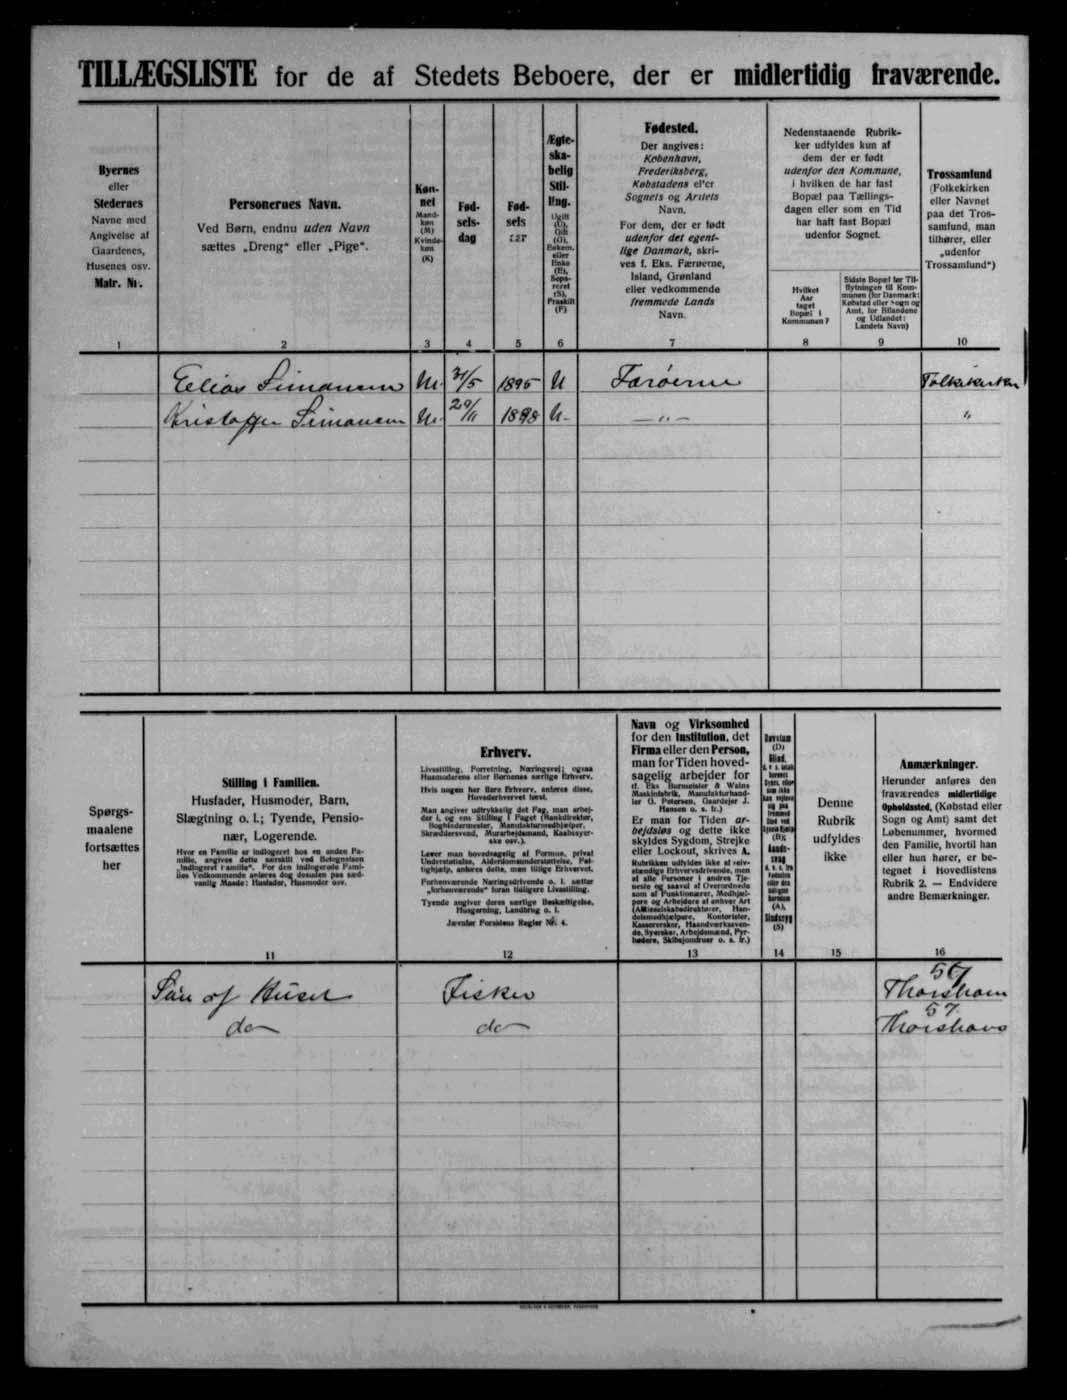 TILLÆGSLISTE for de af Stedets Beboere, der er midlertidig fraværende.
Byernes
eller
Stedernes
Navne med
Angivelse af
Gaardenes,
Husenes osv.
Matr. Nr.
1
Personernes Navn.
Ved Børn, endnu uden Navn
sættes „Dreng“ eller „Pige“.
2
Køn-
net
Mand-
køn
(M)
Kvinde-
køn
(K)
3
Fød-
sels-
dag
4
Fød-
sels
5
Ægte-
ska-
belig
Stil-
ling.
Ugift
(U),
Gift
(G),
Enkem.
eller
Enke
(E),
Sepa-
reret
(S),
Fraskilt
(F)
6
Fødested.
Der angives:
København,
Frederiksberg,
Købstadens eller
Sognets og Amtets
Navn.
For dem, der er født
udenfor det egent-
lige Danmark, skri-
ves f. Eks. Færøerne,
Island, Grønland
eller vedkommende
fremmede Lands
Navn.
7
Nedenstaaende Rubrik-
ker udfyldes kun af
dem der er født
udenfor den Kommune,
i hvilken de har fast
Bopæl paa Tællings-
dagen eller som en Tid
har haft fast Bopæl
udenfor Sognet.
Hvilket
Aar
taget
Bopæl i
Kommunen?
8
Sidste Bopæl før Til-
flytningen til Kom-
munen (for Danmark:
Købstad eller Sogn og
Amt, for Bilandene
og Udlandet:
Landets Navn)
9
Trossamfund
(Folkekirken
eller Navnet
paa det Tros-
samfund, man
tilhører, eller
„udenfor
Trossamfund“)
10
Elias Simonsen M. 31/5 1895 U Færøerne Folkekirken
Kristoffer Simonsen M. 29/11 1898 U. —„— „
Spørgs-
maalene
fortsættes
her
Stilling i Familien.
Husfader, Husmoder, Barn,
Slægtning o. l.; Tyende, Pensio-
nær, Logerende.
Hvor en Familie er indlogeret hos en anden Fa-
milie, angives dette særskilt ved Betegnelsen
„indlogeret Familie“. For den indlogerede Fami-
lies Vedkommende anføres dog desuden paa sæd-
vanlig Maade: Husfader, Husmoder osv.
11
Erhverv.
Livsstilling, Forretning, Næringsvej; ogsaa
Husmoderens eller Børnenes særlige Erhverv.
Hvis nogen har flere Erhverv, anføres disse,
Hovederhvervet først.
Man angiver udtrykkelig det Fag, man arbej-
der i, og ens Stilling i Faget (Bankdirektør,
Bogbindermester, Manufakturmedhjælper,
Skræddersvend, Murarbejdsmand, Kaabesyer-
ske osv.).
Lever man hovedsagelig af Formue, privat
Understøttelse, Aldersdomsunderstøttelse, Fat-
tighjælp, anføres dette, men tillige Erhvervet.
Forhenværende Næringsdrivende o. l. sætter
„forhenværende“ foran tidligere Livsstilling.
Tyende angiver deres særlige Beskæftigelse,
Husgerning, Landbrug o. l.
Jævnfør Forsidens Regler Nr. 4.
12
Navn og Virksomhed
for den Institution, det
Firma eller den Person,
man for Tiden hoved-
sagelig arbejder for
(f. Eks. Burmeister & Wains
Maskinfabrik, Manufakturhand-
ler G. Petersen, Gaardejer J.
Hansen o. s. fr.)
Er man for Tiden ar-
bejdsløs og dette ikke
skyldes Sygdom, Strejke
eller Lockout, skrives A.
Rubrikken udfyldes ikke af selv-
stændige Erhvervsdrivende, men
af alle Personer i andres Tje-
neste og saavel af Overordnede
som af Funktionærer, Medhjæl-
pere og Arbejdere af enhver Art
(Aktieselskabsdirektører, Han-
delsmedhjælpere, Kontorister,
Kassererskor, Haandværkssven-
de, Syersker, Arbejdsmænd, Fyr-
bødere, Skibsjomfruer o. s. fr.)
13
Døvstum
(D)
Blind,
(B);
Aands-
svag
(A),
Sindssyg
(S)
14
Denne
Rubrik
udfyldes
ikke
15
Anmærkninger.
Herunder anføres den
fraværendes midlertidige
Opholdssted, (Købstad eller
Sogn og Amt) samt det
Løbenummer, hvormed
den Familie, hvortil han
eller hun hører, er be-
tegnet i Hovedlistens
Rubrik 2. — Endvidere
andre Bemærkninger.
16
Søn af Huset Fisker 57 Thorshavn
do do 57. Thorshavn